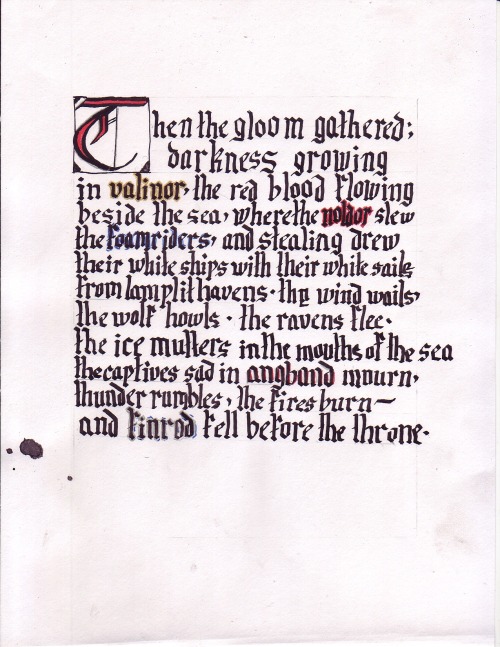 Then the gloom gathered;
darkness growing
in valinor, the red blood flowing
beside the sea, where the noldor slew
the foamriders, and stealing drew
their white ships with their white sails
from lamplit havens. the wind wails,
the wolf howls. the ravens flee.
the ice mutters in the mouths of the sea
the captives sad in angband mourn,
thunder rumbles, the fires burn~
and finrod fell before the throne.